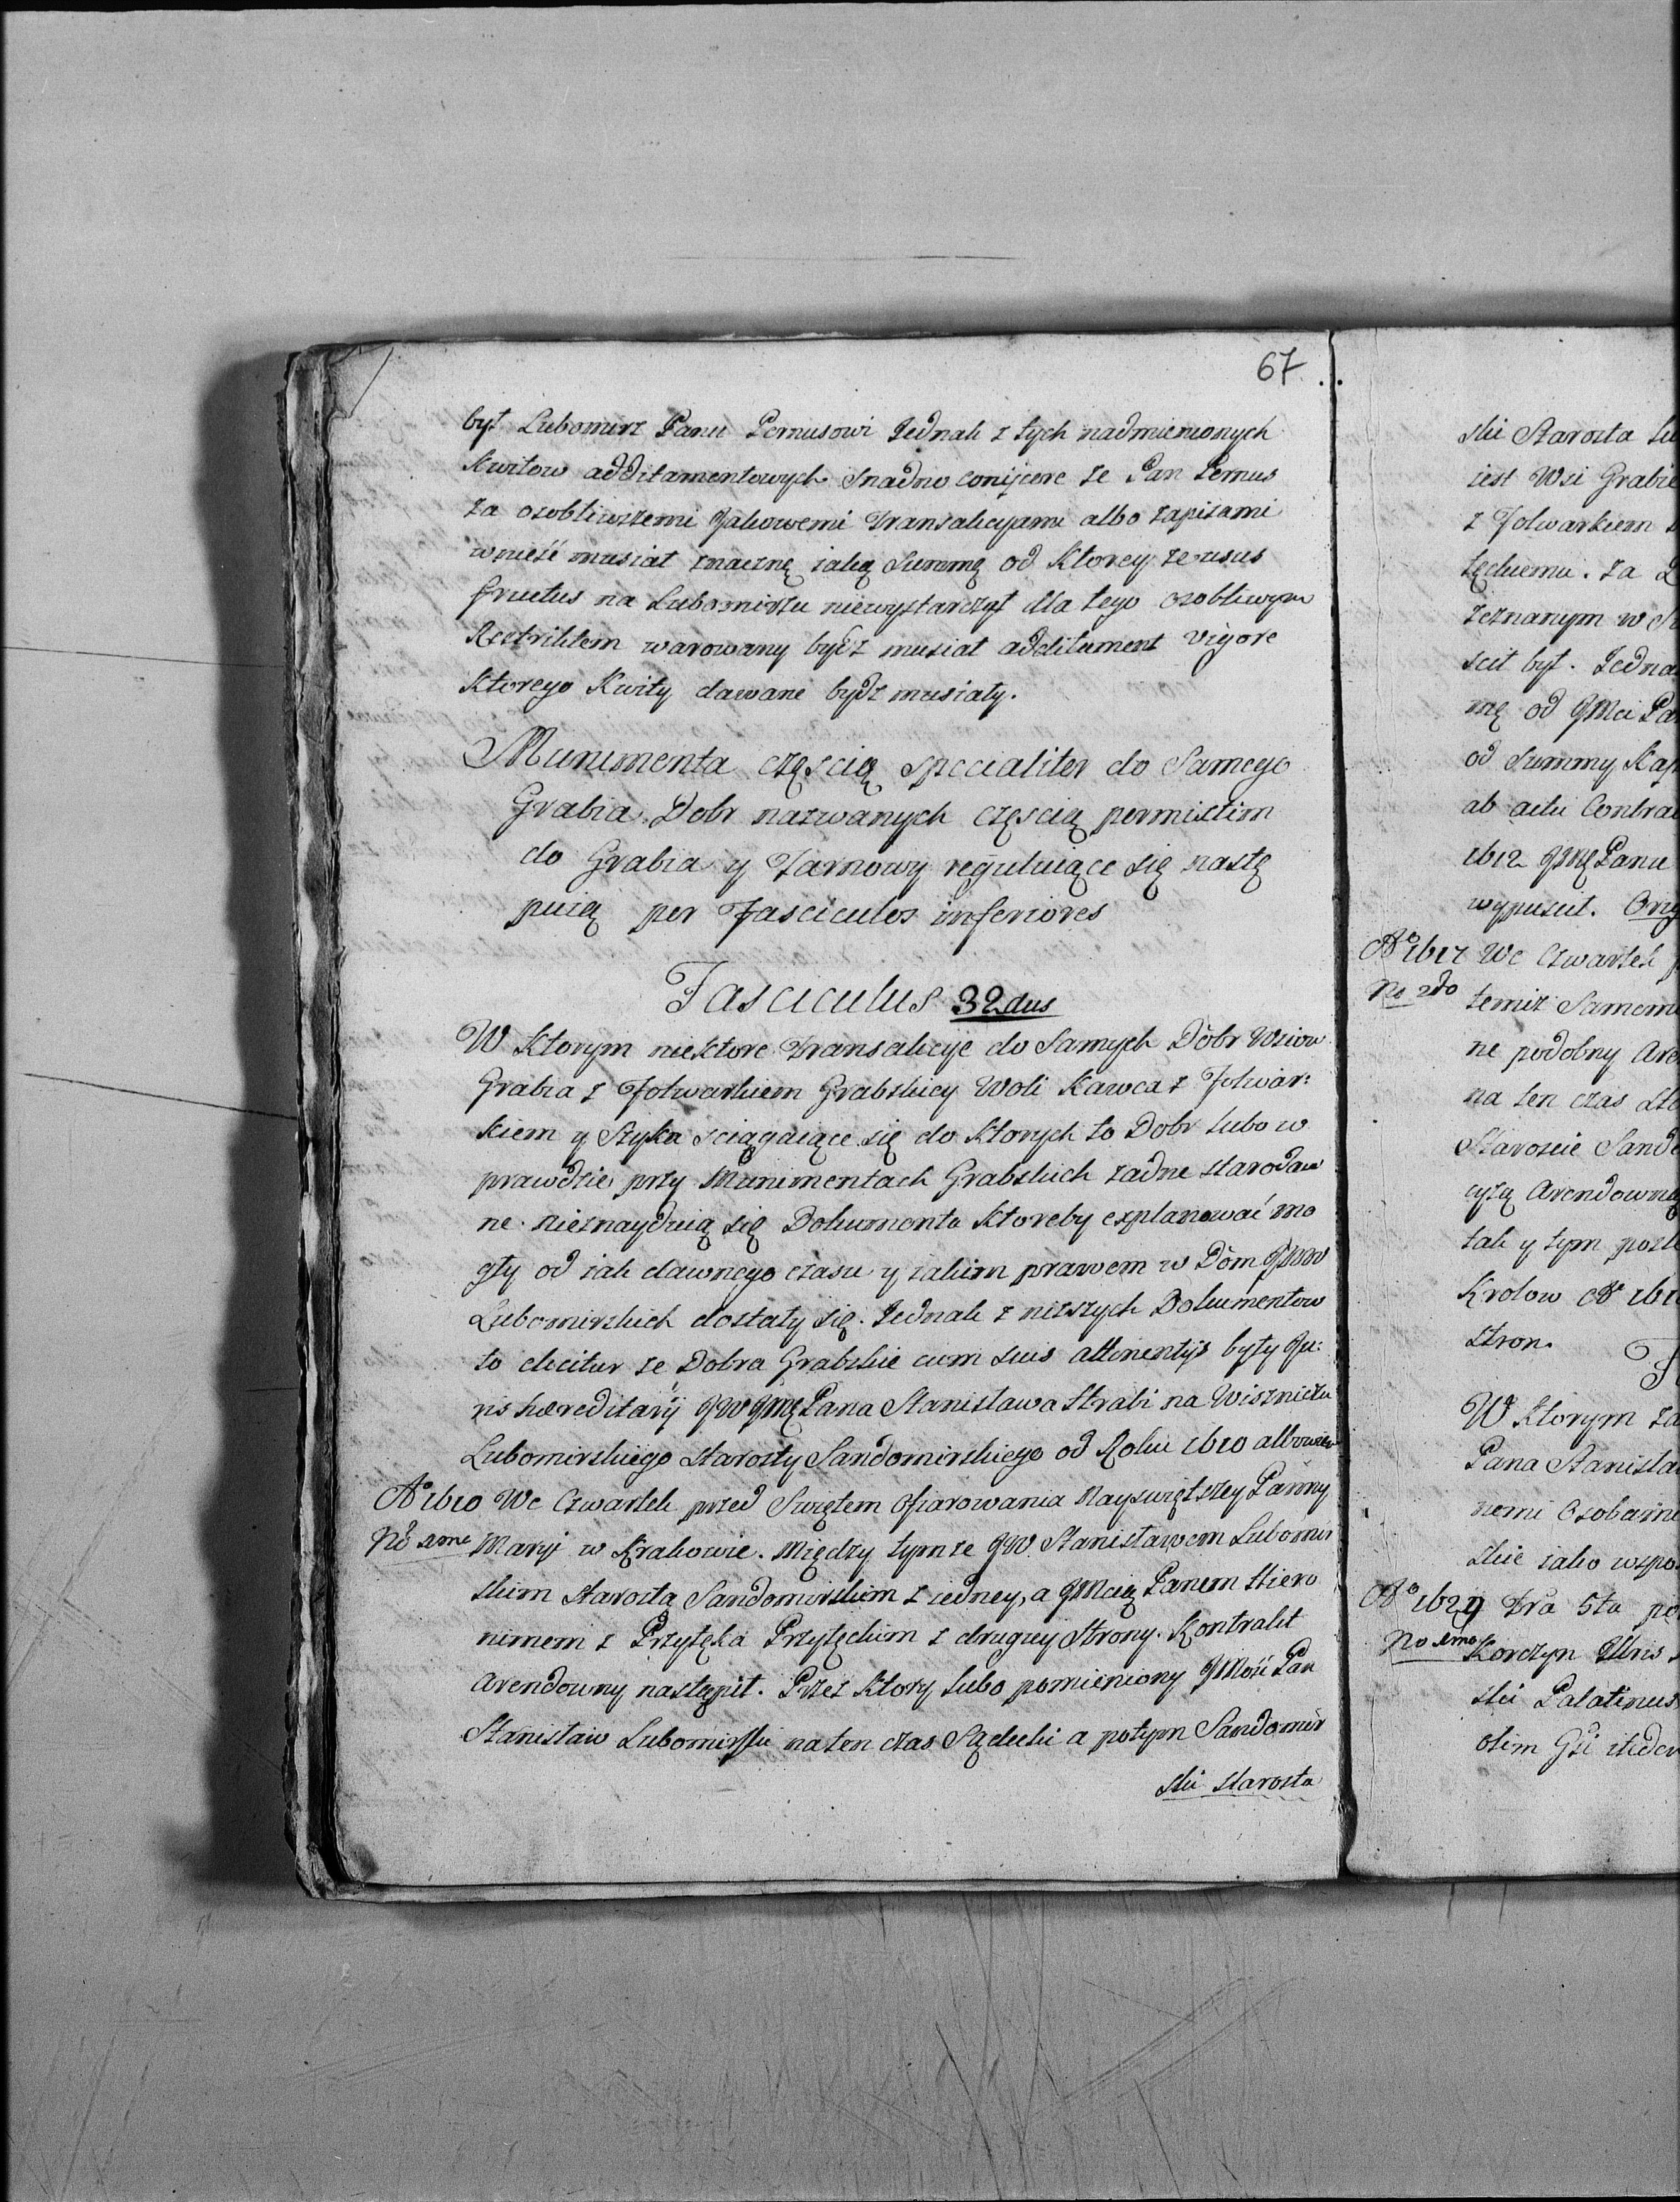 67
był Lubomirz Panu Pernusowi Jednak z tych nadmienionych
kwitow additamentowych snadno conijcere że Pan Pernus
za osobliwszemi jakowemi Transakcyami albo zapisami
wnieść musiał znaczną iaką Summę od ktorey ze usus
fructus na Lubomirzu niewystarczył dla tego osobliwym
Reskriktem warowany bydz musiał additament vigore
ktorego Kwity dawane bydz musiały.
Munimenta częscią specialiter do Samego
Grabia Dobr nazwanych częscią permixtim
do Grabia y Tarnowy reguluiące się nastę
puią per Fasciculos inferiores
Fasciculus 32dus
W ktorym niektore Transakcye do Samych Dobr Wsiow
Grabia z Folwarkiem Grabskiey Woli Kawca z Folwar:
kiem y Szyka sciągaiące się do ktorych to Dobr lubo w
prawdzie przy Munimentach Grabskich żadne starodaw
ne nieznayduią się Dokumenta ktoreby explanować mo
gły od iak dawnego czasu y iakim prawem w Dom JWW
Lubomirskich dostały się. Jednak z niższych Dokumentow
to elicitur że Dobra Grabskie cum suis attinentijs były Ju:
ris hæreditarij JW JMę Pana Stanisława Hrabi na Wiszniczu
Lubomirskiego Starosty Sandomirskiego od Roku 1610 albowiem
Aº 1610 We Czwartek przed Swiętem Ofiarowania Nayswiętszey Panny
Nº 1mo Maryi w Krakowie. Między tymże JW Stanisławem Lubomir
skim Starostą Sandomirskim z iedney, a JMcią Panem Hiero
nimem z Przyłęka Przyłęckim z drugiey Strony. Kontrakt
Arendowny nastąpił. Przez ktory lubo pomieniony JMość Pan
Stanisław Lubomirski na ten czas Sądecki a potym Sandomir
ski Starosta
ski Starosta
iest Wsi
z Folwarkiem
łęckiemu. za
zeznanym w
scił był.
mę od JMci
od Summy
ab actu
1612 JMę Panu
wypuscił.
Aº 1617 We Czwartek
No 2do temiz
ne podobny
na ten czas
Staroscie
cyżą
tak y tym
Krolow Aº
stron.
W ktorym
Pana
nemi
skie iako
Aº 1629 Fra 5ta
No 1mo Korczyn
ski Palatinus
olim